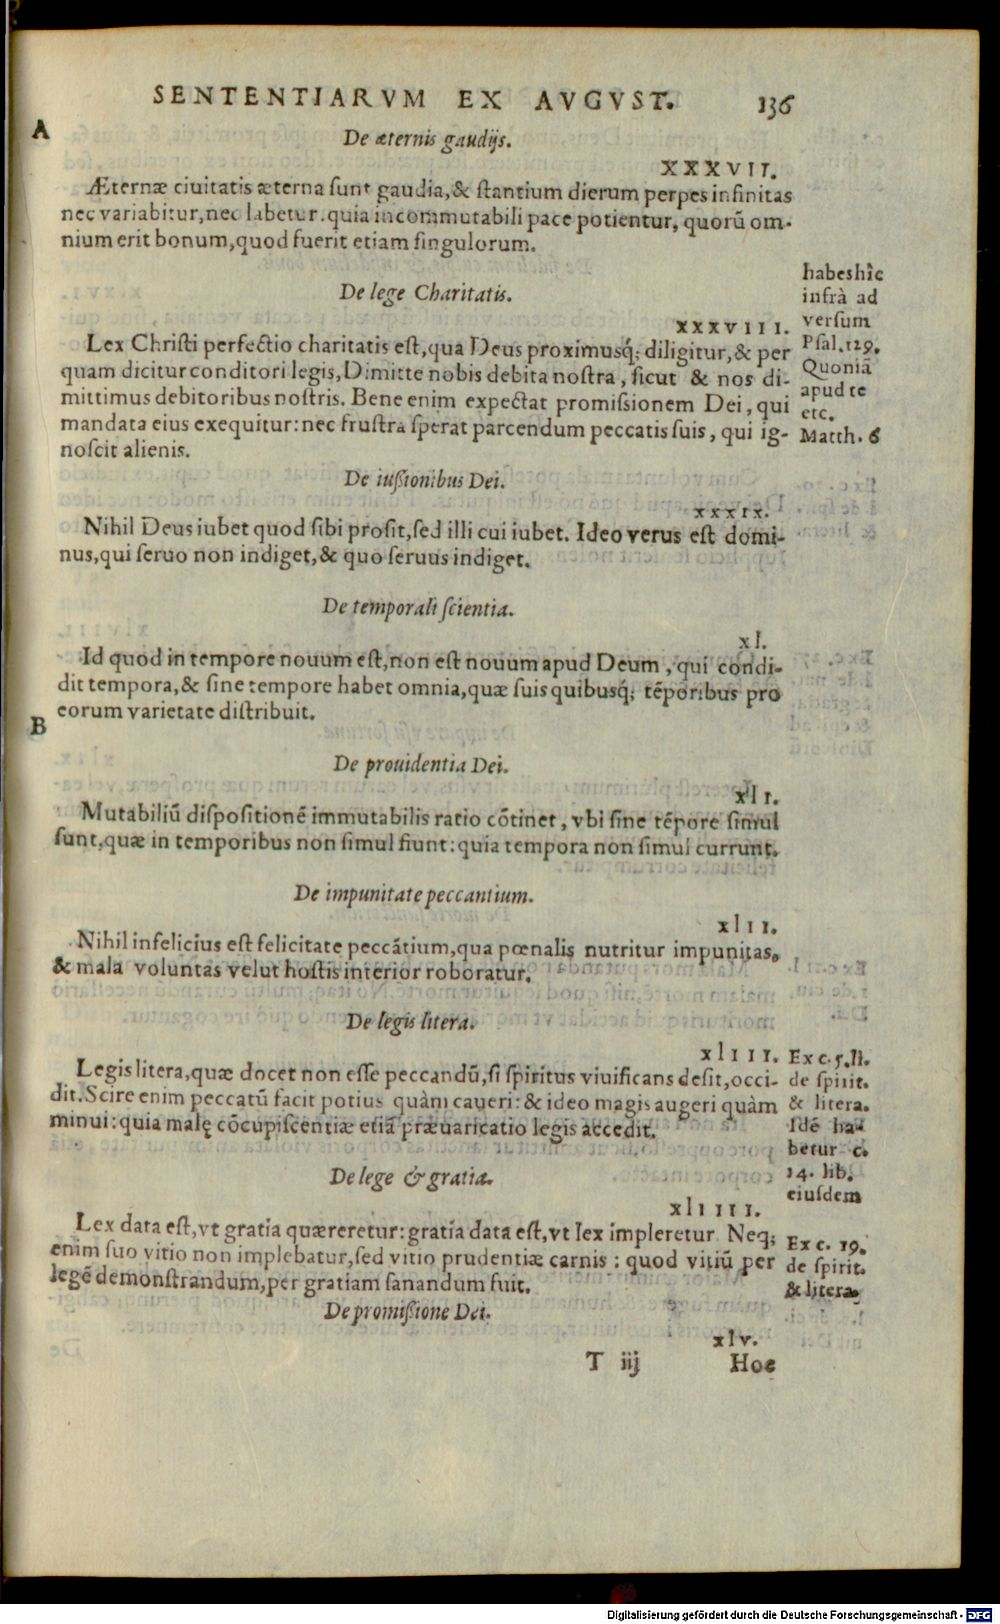 SENTENTIARVM EX AVGVST. 136
A
De æternis gaudijs.
XXXVII.
Æternæ ciuitatis æterna sunt gaudia, & stantium dierum perpes infinitas
nec variabitur, nec labetur. quia incommutabili pace potientur, quorũ om-
nium erit bonum, quod fuerit etiam singulorum.
De lege Charitatis.
XXXVIII.
Lex Christi perfectio charitatis est, qua Deus proximusq́; diligitur, & per
quam dicitur conditori legis, Dimitte nobis debita nostra, sicut & nos di-
mittimus debitoribus nostris. Bene enim expectat promissionem Dei, qui
mandata eius exequitur: nec frustra sperat parcendum peccatis suis, qui ig-
noscit alienis.
habes hîc
infrà ad
versum
Psal. 129.
Quoniã
apud te
etc.
Matth. 6
De iußionibus Dei.
xxxix.
Nihil Deus iubet quod sibi prosit, sed illi cui iubet. Ideo verus est domi-
nus, qui seruo non indiget, & quo seruus indiget.
De temporali scientia.
xl.
Id quod in tempore nouum est, non est nouum apud Deum, qui condi-
dit tempora, & sine tempore habet omnia, quæ suis quibusq́; tẽporibus pro
eorum varietate distribuit.
B
De prouidentia Dei.
xlI.
Mutabiliũ dispositionẽ immutabilis ratio cõtinet, vbi sine tẽpore simul
sunt, quæ in temporibus non simul fiunt: quia tempora non simul currunt.
De impunitate peccantium.
xlII.
Nihil infelicius est felicitate peccãtium, qua pœnalis nutritur impunitas,
& mala voluntas velut hostis interior roboratur.
De legis litera.
xlIII.
Legis litera, quæ docet non esse peccandũ, si spiritus viuificans desit, occi-
dit. Scire enim peccatũ facit potius quàm caueri: & ideo magis augeri quàm
minui: quia malę cõcupiscentiæ etiã præuaricatio legis accedit.
Ex c. 5. li.
de spirit.
& litera.
Idẽ ha-
betur c.
14. lib.
eiusdem
De lege & gratia.
xlIIII.
Lex data est, vt gratia quæreretur: gratia data est, vt lex impleretur Neq;
enim suo vitio non implebatur, sed vitio prudentiæ carnis: quod vitiũ per
legẽ demonstrandum, per gratiam sanandum fuit.
Ex c. 19.
de spirit.
& litera.
De promißione Dei.
xlv.
T iij Hoc
Digitalisierung gefördert durch die Deutsche Forschungsgemeinschaft - DFG